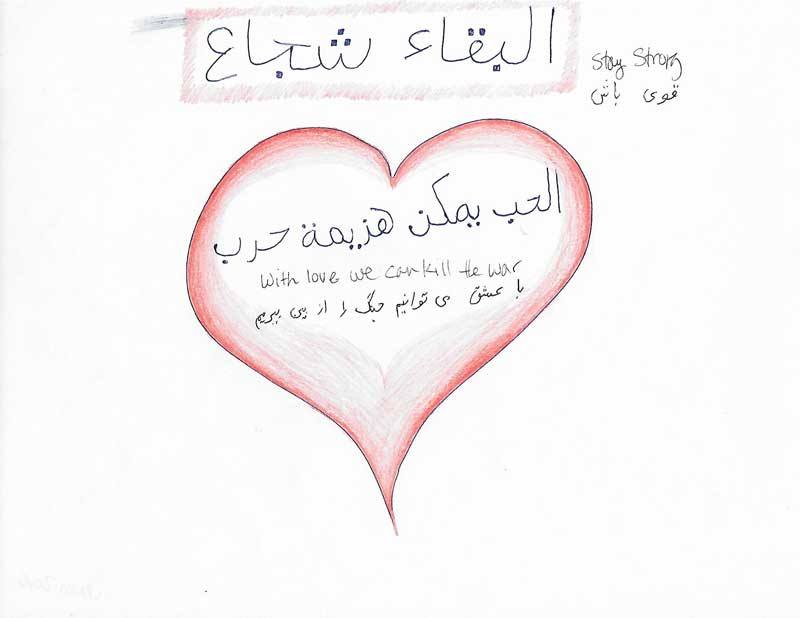 اليقاء شجاع
Stay Strong
قوی باش
الحب يمكن هزيمة حرب
with love we can kill the war
با عشق می توانیم جنگ را از بین ببریم